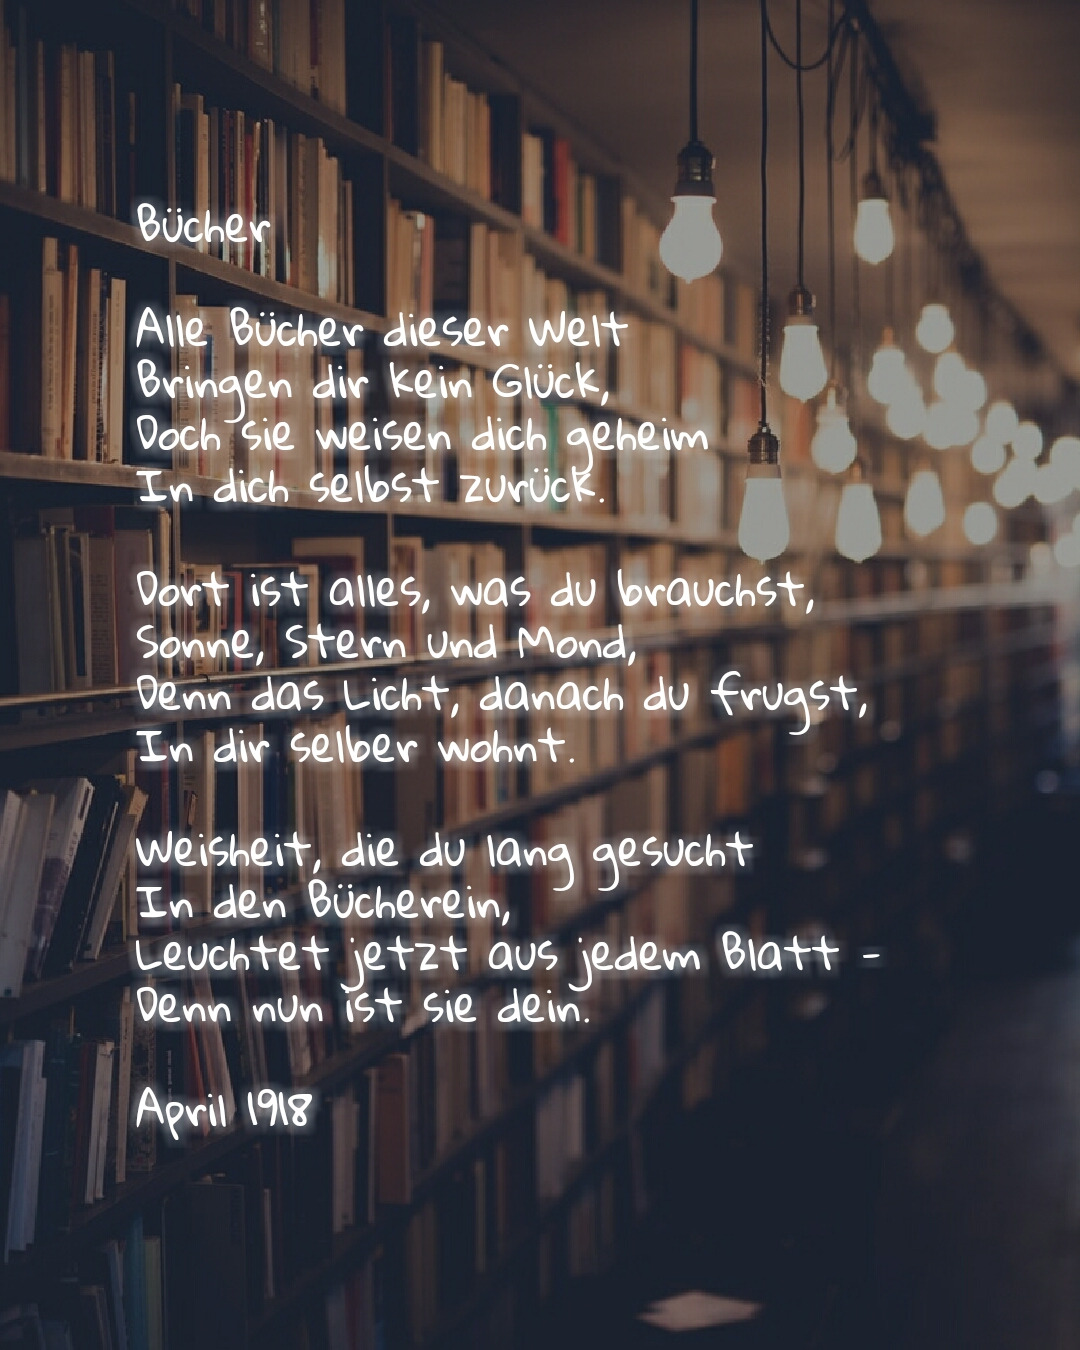 Bücher
Alle Bücher dieser Welt
Bringen dir kein Glück,
Doch sie weisen dich geheim
In dich selbst zurück.
Dort ist alles, was du brauchst,
Sonne, Stern und Mond,
Denn das Licht, danach du frugst,
In dir selber wohnt.
Weisheit, die du lang gesucht
In den Bücherein,
Leuchtet jetzt aus jedem Blatt -
Denn nun ist sie dein.
April 1918